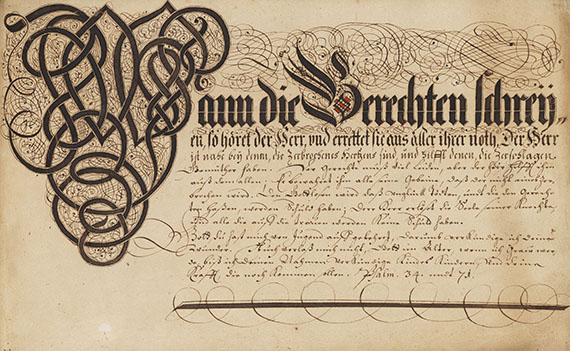 Wann die Gerechten schreÿ,,
en, so höret der Herr, und errettet sie aus aller ihrer noth, Der Herr
ist nahe beÿ denen, die Zerbrochenes Hertzens sind, und hilfft denen, die Zerschlagen
Gemüther haben. Der Gerechte muß viel leiden, aber der Herr hilfft ihm
auß dem allen. Er bewaret ihm alle seine Gebeine, daß der nicht eines zer-
brochen wird. Den Gottlosen wird das Unglück tödten, und die den Gerech-
ten haßen werden Schuld haben. Der Herr erlöset die Seele seiner Knechte,
und alle die auf ihn trauen werden keine Schuld haben.
Gott du hast mich von Jugend auf gelehret, verkündige ich deine
Wunder. Auch verlaß mich nicht, Gott im Alter, ich grau wer-
de, biß ich deinen verkündige Kindes Kindern, und deine
Krafft die noch kommen sollen. Psalm. 34. 71.